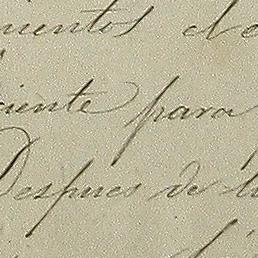 mentos de
ciente para
Despues de l